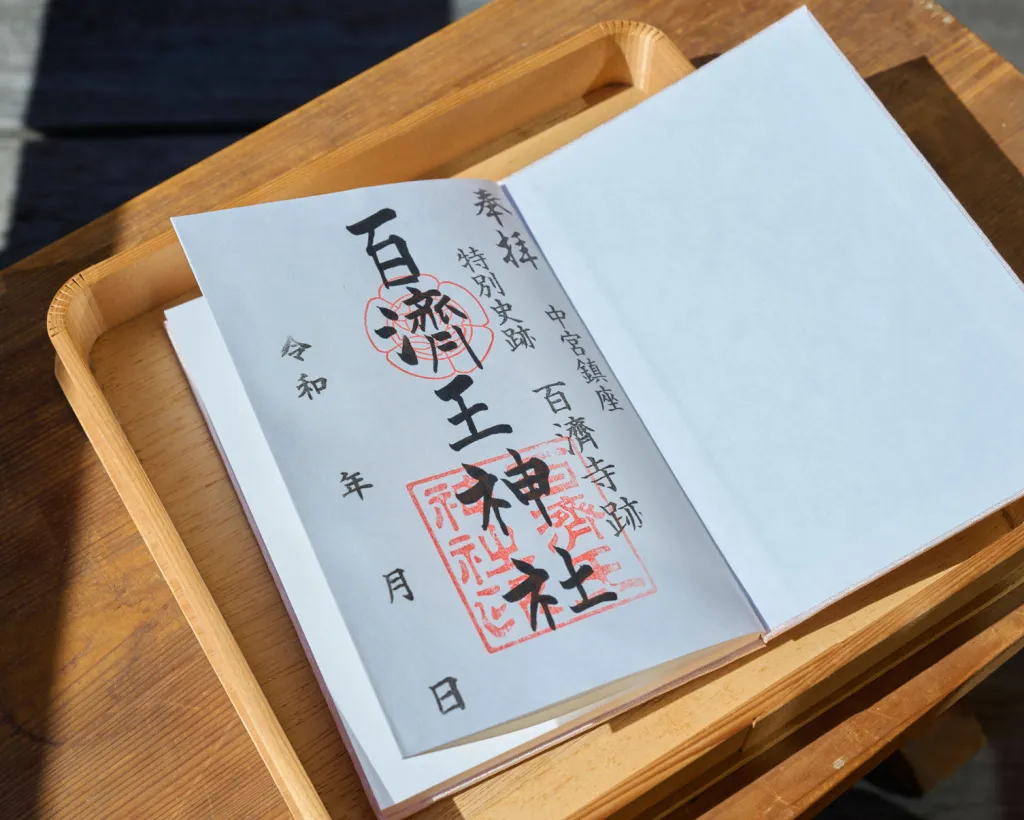 奉拝
中宮鎮座
特別史跡
百濟寺跡
百濟王神社
令和 年 月 日
百濟王
神社